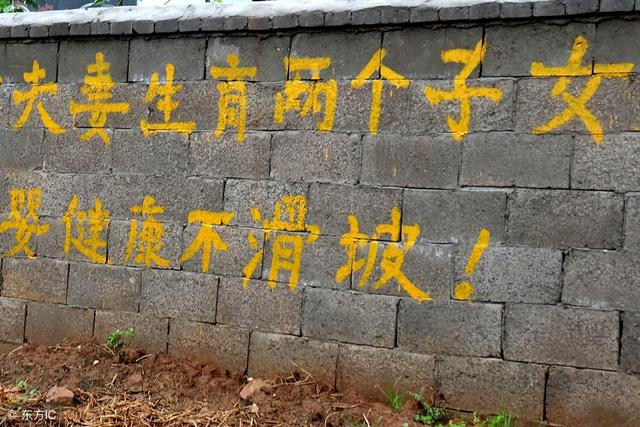 夫妻生育两个子女
婴健康不滑坡！
©东方IC